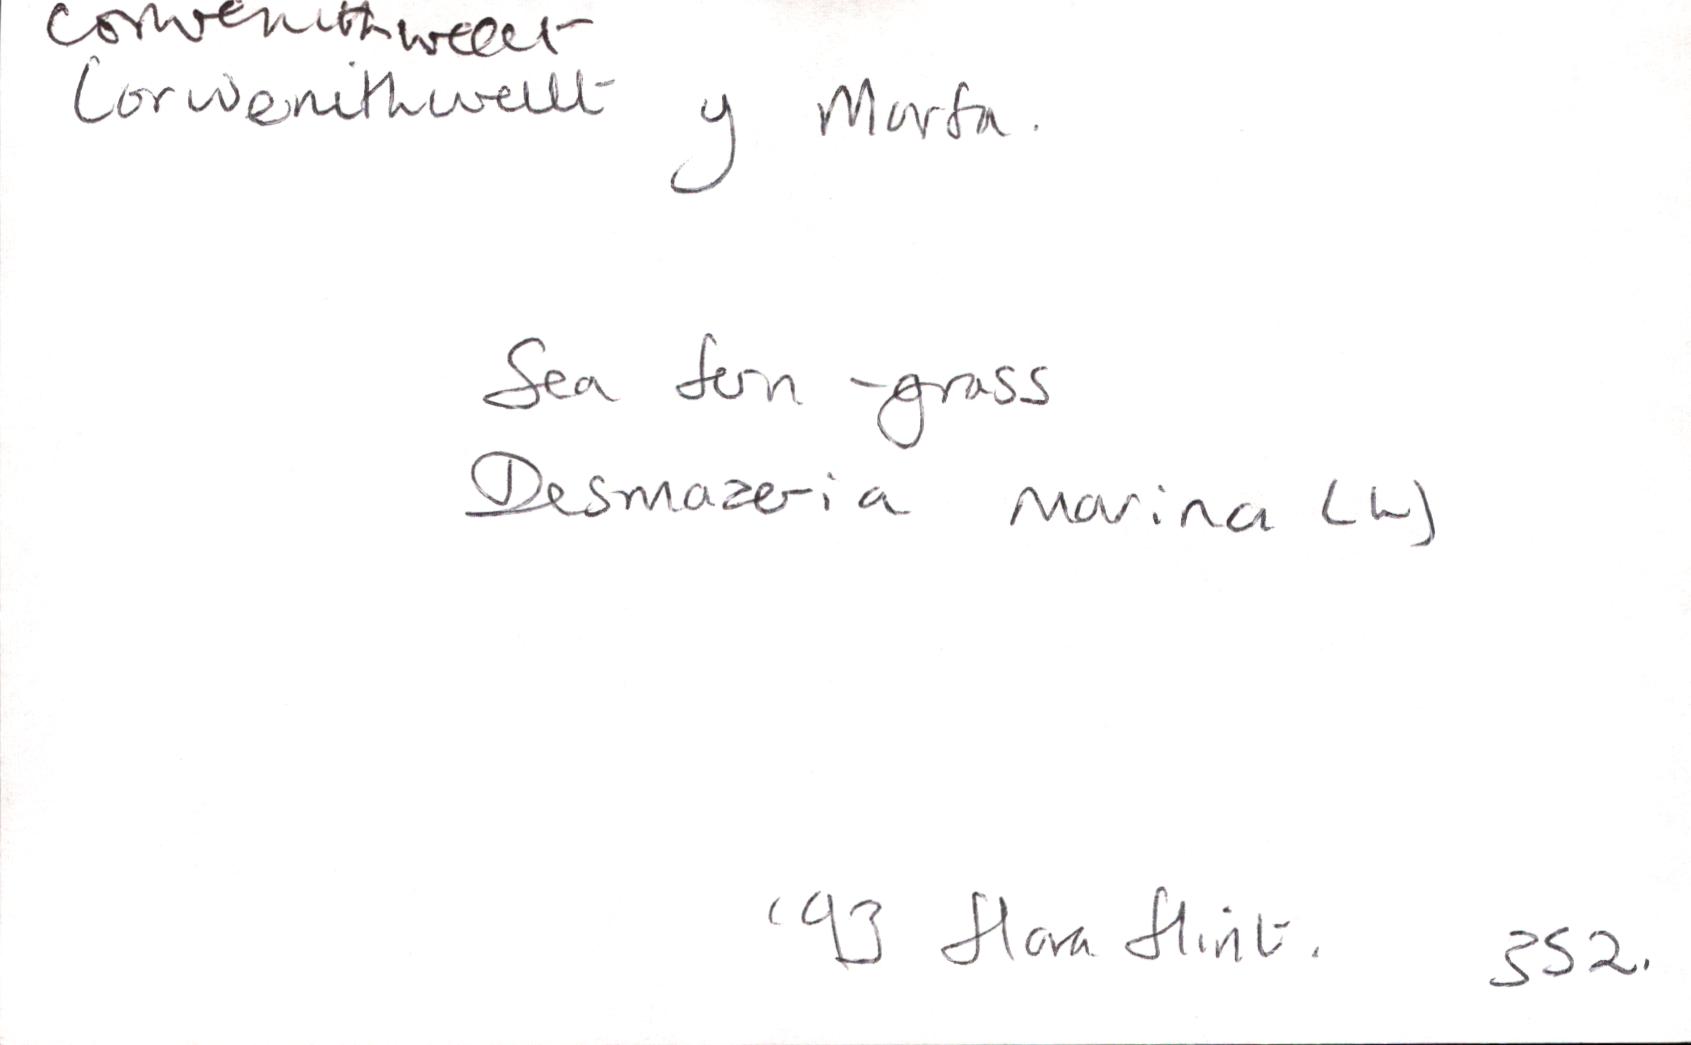 corwenithwellt
Corwenithwellt y Morfa.
Sea fern-grass
Desmazeria marina (L)
'93 Flora Flint. 352.